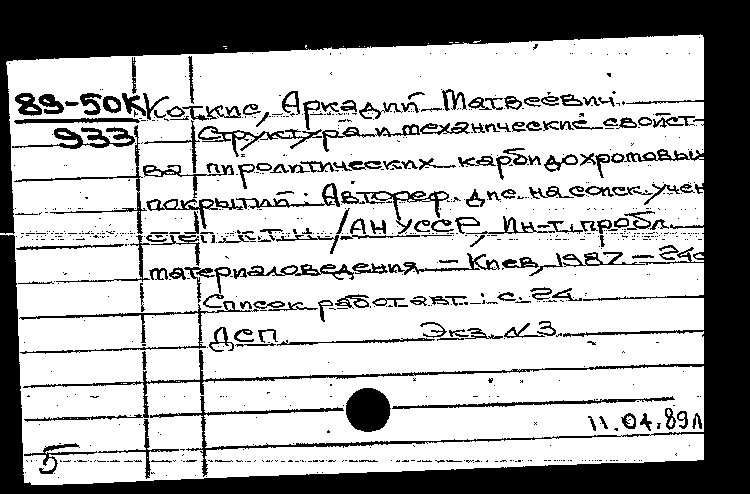 89-50К
933
Коткис, Аркадий Матвеевич.
Структура и механические свойст-
ва пиролитических карбидохромовых
покрытий: Автореф. дис. на соиск. учен
степ. к.т.н. / АН УССР, Ин-т. пробл.
материаловедения. – Киев, 1987. – 24с
Список работ авт.: с. 24
ДСП. Экз. №3
11.04.89л
5